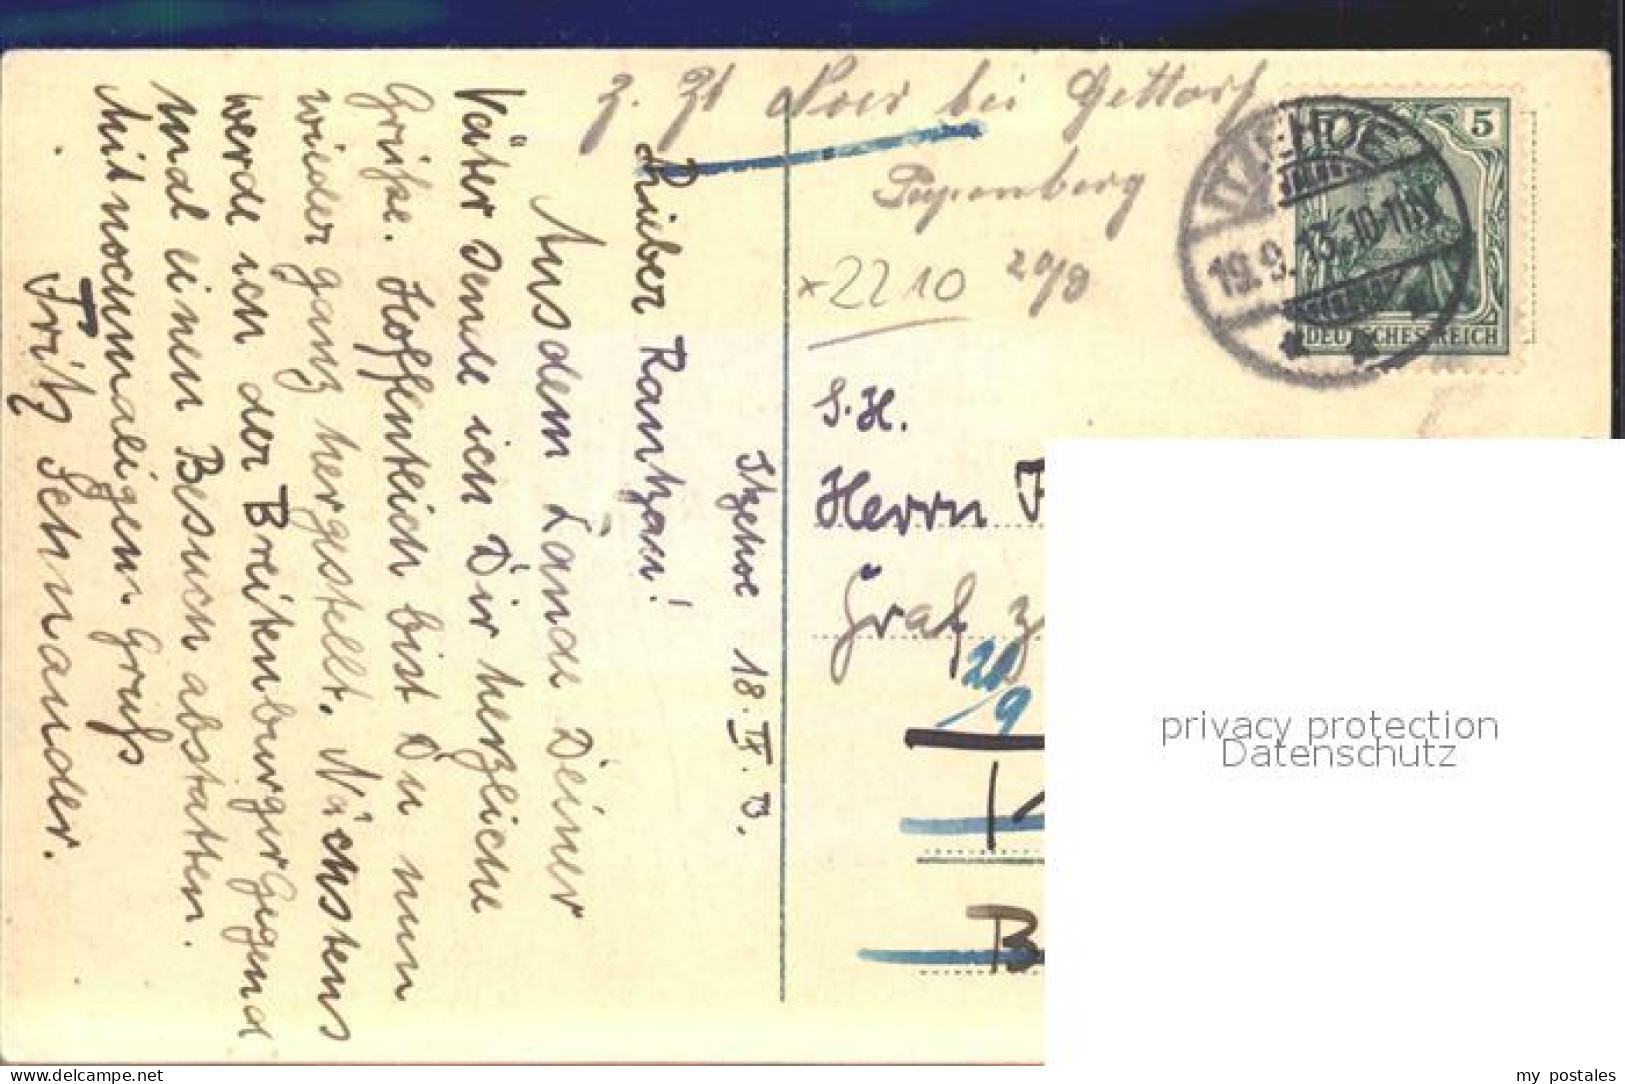 z. Zt Noer bei Gettorf
Papenberg
*2210
20/9
ITZEHOE
19.9.13.10-11V.
5
DEUTSCHES REICH
Itzehoe 18. IX. 13.
Lieber Rantzau!
Aus dem Lande Deiner
Väter sende ich Dir herzliche
Grüße. Hoffentlich bist Du nun
wieder ganz hergestellt. Nächstens
werde ich der Breitenburger Gegend
mal einen Besuch abstatten.
Mit nochmaligem Gruß
Fritz
S. H.
Herrn
Graf z
20/9
K
B
privacy protection
Datenschutz
www.delcampe.net
my_postales